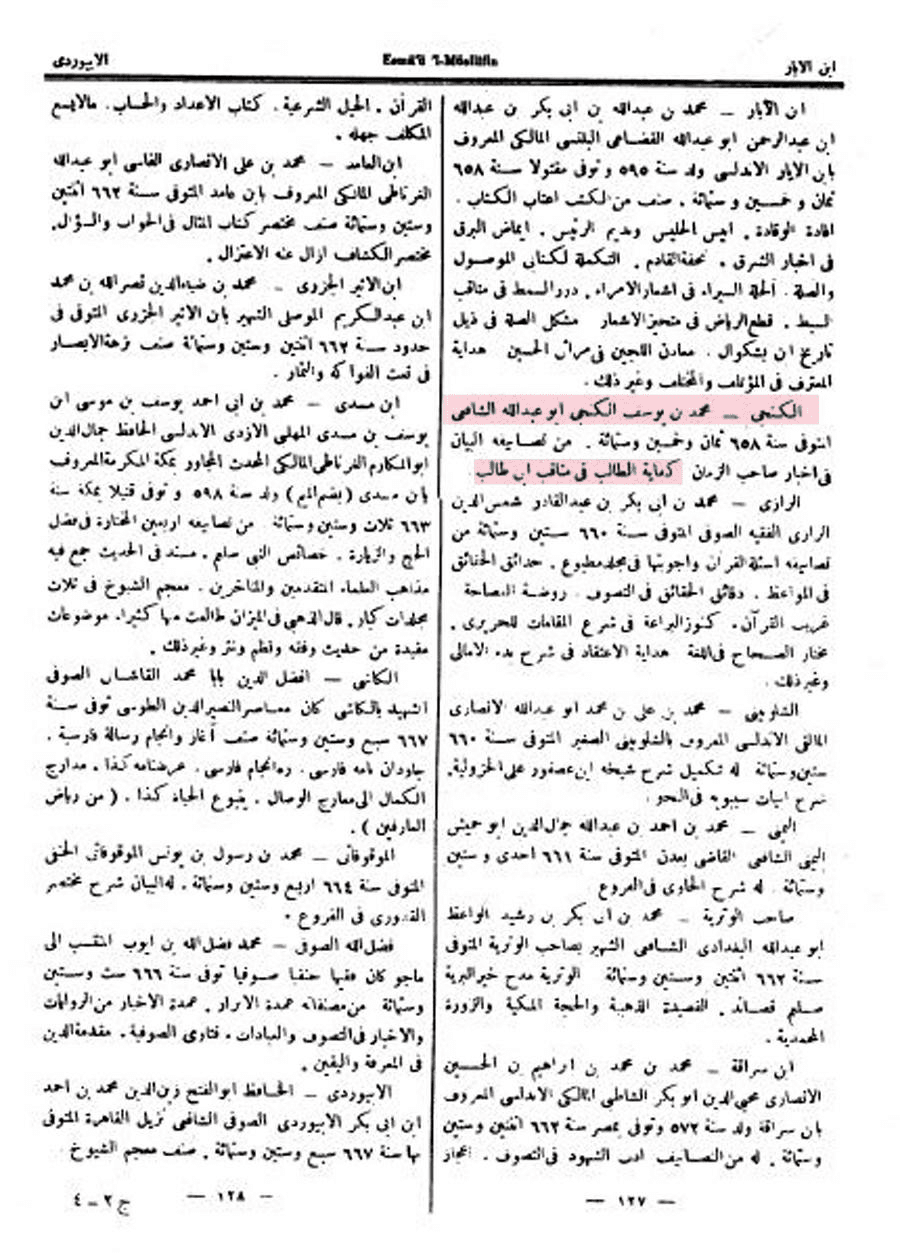 ابن الابار
Esmâ'ü 'l-Müellifîn
الابيوردى
ابن الآبار ـ محمد بن عبدالله بن ابى بكر بن عبدالله
ابن عبدالرحمن ابو عبدالله القضاعى البلنسى المالكى المعروف
بابن الابار الاندلسى ولد سنة ٥٩٥ وتوفى مقتولا سنة ٦٥٨
ثمان و خمسين و ستمائة . صنف من الكتب اعتاب الكتاب .
افادة الوقادة . انيس الجليس ونديم الرئيس . ايماض البرق
فى اخبار الشرق . تحفة القادم . التكملة لكتابى الموصول
والصلة . الحلة السيراء فى اشعار الامراء . درر السمط فى مناقب
السبط . قطع الرياض فى متخير الاشعار مشكل الصلة فى ذيل
تاريخ ابن بشكوال . معادن اللجين فى مراثى الحسين هداية
المعترف فى المؤتلف والمختلف وغير ذلك .
الكنجى ـ محمد بن يوسف الكنجى ابو عبدالله الشافعى
المتوفى سنة ٦٥٨ ثمان وخمسين وستمائة . من تصانيفه البيان
فى اخبار صاحب الزمان كفاية الطالب فى مناقب ابى طالب
الرازى ـ محمد بن ابى بكر بن عبدالقادر شمس الدين
الرازى الفقيه الصوفى المتوفى سنة ٦٦٠ ستين وستمائة من
تصانيفه اسئلة القرآن واجوبتها فى مجلد مطبوع . حدائق الحقائق
فى المواعظ . دقائق الحقائق فى التصوف . روضة الفصاحة
غريب القرآن . كنوز البراعة فى شرح المقامات للحريرى .
مختار الصحاح فى اللغة هداية الاعتقاد فى شرح بدء الامالى
وغير ذلك .
الشلوبينى ـ محمد بن على بن محمد ابو عبدالله الانصارى
المالقى الاندلسى المعروف بالشلوبينى الصغير المتوفى سنة ٦٦٠
ستين وستمائة له تكميل شرح شيخه ابن عصفور على الجزولية.
شرح ابيات سيبويه فى النحو
اليمنى ـ محمد بن احمد بن عبدالله جمال الدين ابو حميش
اليمنى الشافعى القاضى بعدن المتوفى سنة ٦٦١ احدى و ستين
وستمائة . له شرح الحاوى فى الفروع
صاحب الوترية ـ محمد بن ابى بكر بن رشيد الواعظ
ابو عبدالله البغدادى الشافعى الشهير بصاحب الوترية المتوفى
سنة ٦٦٢ اثنتين وستين وستمائة الوترية مدح خير البرية
صلعم قصائد . القصيدة الذهبية والحجة المكية والزورة
المحمدية .
ابن سراقة ـ محمد بن محمد بن ابراهيم بن الحسين
الانصارى محيى الدين ابو بكر الشاطبى المالكى الاندلسى المعروف
بابن سراقة ولد سنة ٥٧٢ وتوفى بمصر سنة ٦٦٢ اثنتين وستين
وستمائة . له من التصانيف ادب الشهود فى التصوف . اعجاز
— ١٢٧ —
القرآن . الحيل الشرعية . كتاب الاعداد والحساب . مالايسع
المكلف جهله .
ابن العابد ـ محمد بن على الانصارى الفاسى ابو عبدالله
الغرناطى المالكى المعروف بابن عابد المتوفى سنة ٦٦٢ اثنتين
وستين وستمائة صنف مختصر كتاب المثال فى الجواب والسؤال.
مختصر الكشاف ازال عنه الاعتزال .
ابن الاثير الجزرى ـ محمد بن ضياء الدين نصر الله بن محمد
ابن عبدالكريم الموصلى الشهير بابن الاثير الجزرى المتوفى فى
حدود سنة ٦٦٢ اثنتين وستين وستمائة صنف نزهة الابصار
فى نعت الفواكه والثمار .
ابن مسدى ـ محمد بن ابى احمد يوسف بن موسى ابن
يوسف بن مسدى المهلبى الازدى الاندلسى الحافظ جمال الدين
ابو المكارم الغرناطى المالكى المحدث المجاور بمكة المكرمة المعروف
بابن مسدى ( بضم الميم ) ولد سنة ٥٩٨ و توفى قتيلا بمكة سنة
٦٦٣ ثلاث وستين وستمائة من تصانيفه اربعين المختارة فى فضل
الحج والزيارة . خصائص النبى صلعم . مسند فى الحديث جمع فيه
مذاهب العلماء المتقدمين والمتأخرين . معجم الشيوخ فى ثلاث
مجلدات كبار . قال الذهبى فى الميزان طالعت منها كثيرا. موضوعات
مفيدة من حديث وفقه ونظم ونثر وغير ذلك .
الكاشى ـ افضل الدين بابا محمد القاشانى الصوفى
الشهير بالكاشى كان معاصر النصير الدين الطوسى توفى سنة
٦٦٧ سبع وستين وستمائة صنف آغاز وانجام رسالة فارسية .
جاودان نامه فارسى . ره انجام فارسى . عرضنامه كذا . مدارج
الكمال الى معارج الوصال . ينبوع الحياة كذا . ( من رياض
العارفين ) .
الموقوفاتى ـ محمد بن رسول بن يونس الموقوفاتى الحنفى
المتوفى سنة ٦٦٤ اربع وستين وستمائة . له البيان شرح مختصر
القدورى فى الفروع .
فضل الله الصوفى ـ محمد فضل الله بن ايوب المنتسب الى
ماجو كان فقيها حنفيا صوفيا توفى سنة ٦٦٦ ست وستين
وستمائة من مصنفاته عمدة الابرار . عمدة الاخبار من الروايات
والاخبار فى التصوف والعبادات . فتاوى الصوفية . مقدمة الدين
فى المعرفة واليقين .
الابيوردى ـ الحافظ ابو الفتح زين الدين محمد بن احمد
ابن ابى بكر الابيوردى الصوفى الشافعى نزيل القاهرة المتوفى
بها سنة ٦٦٧ سبع وستين وستمائة . صنف معجم الشيوخ .
— ١٢٨ —
ج ٢ ـ ٤